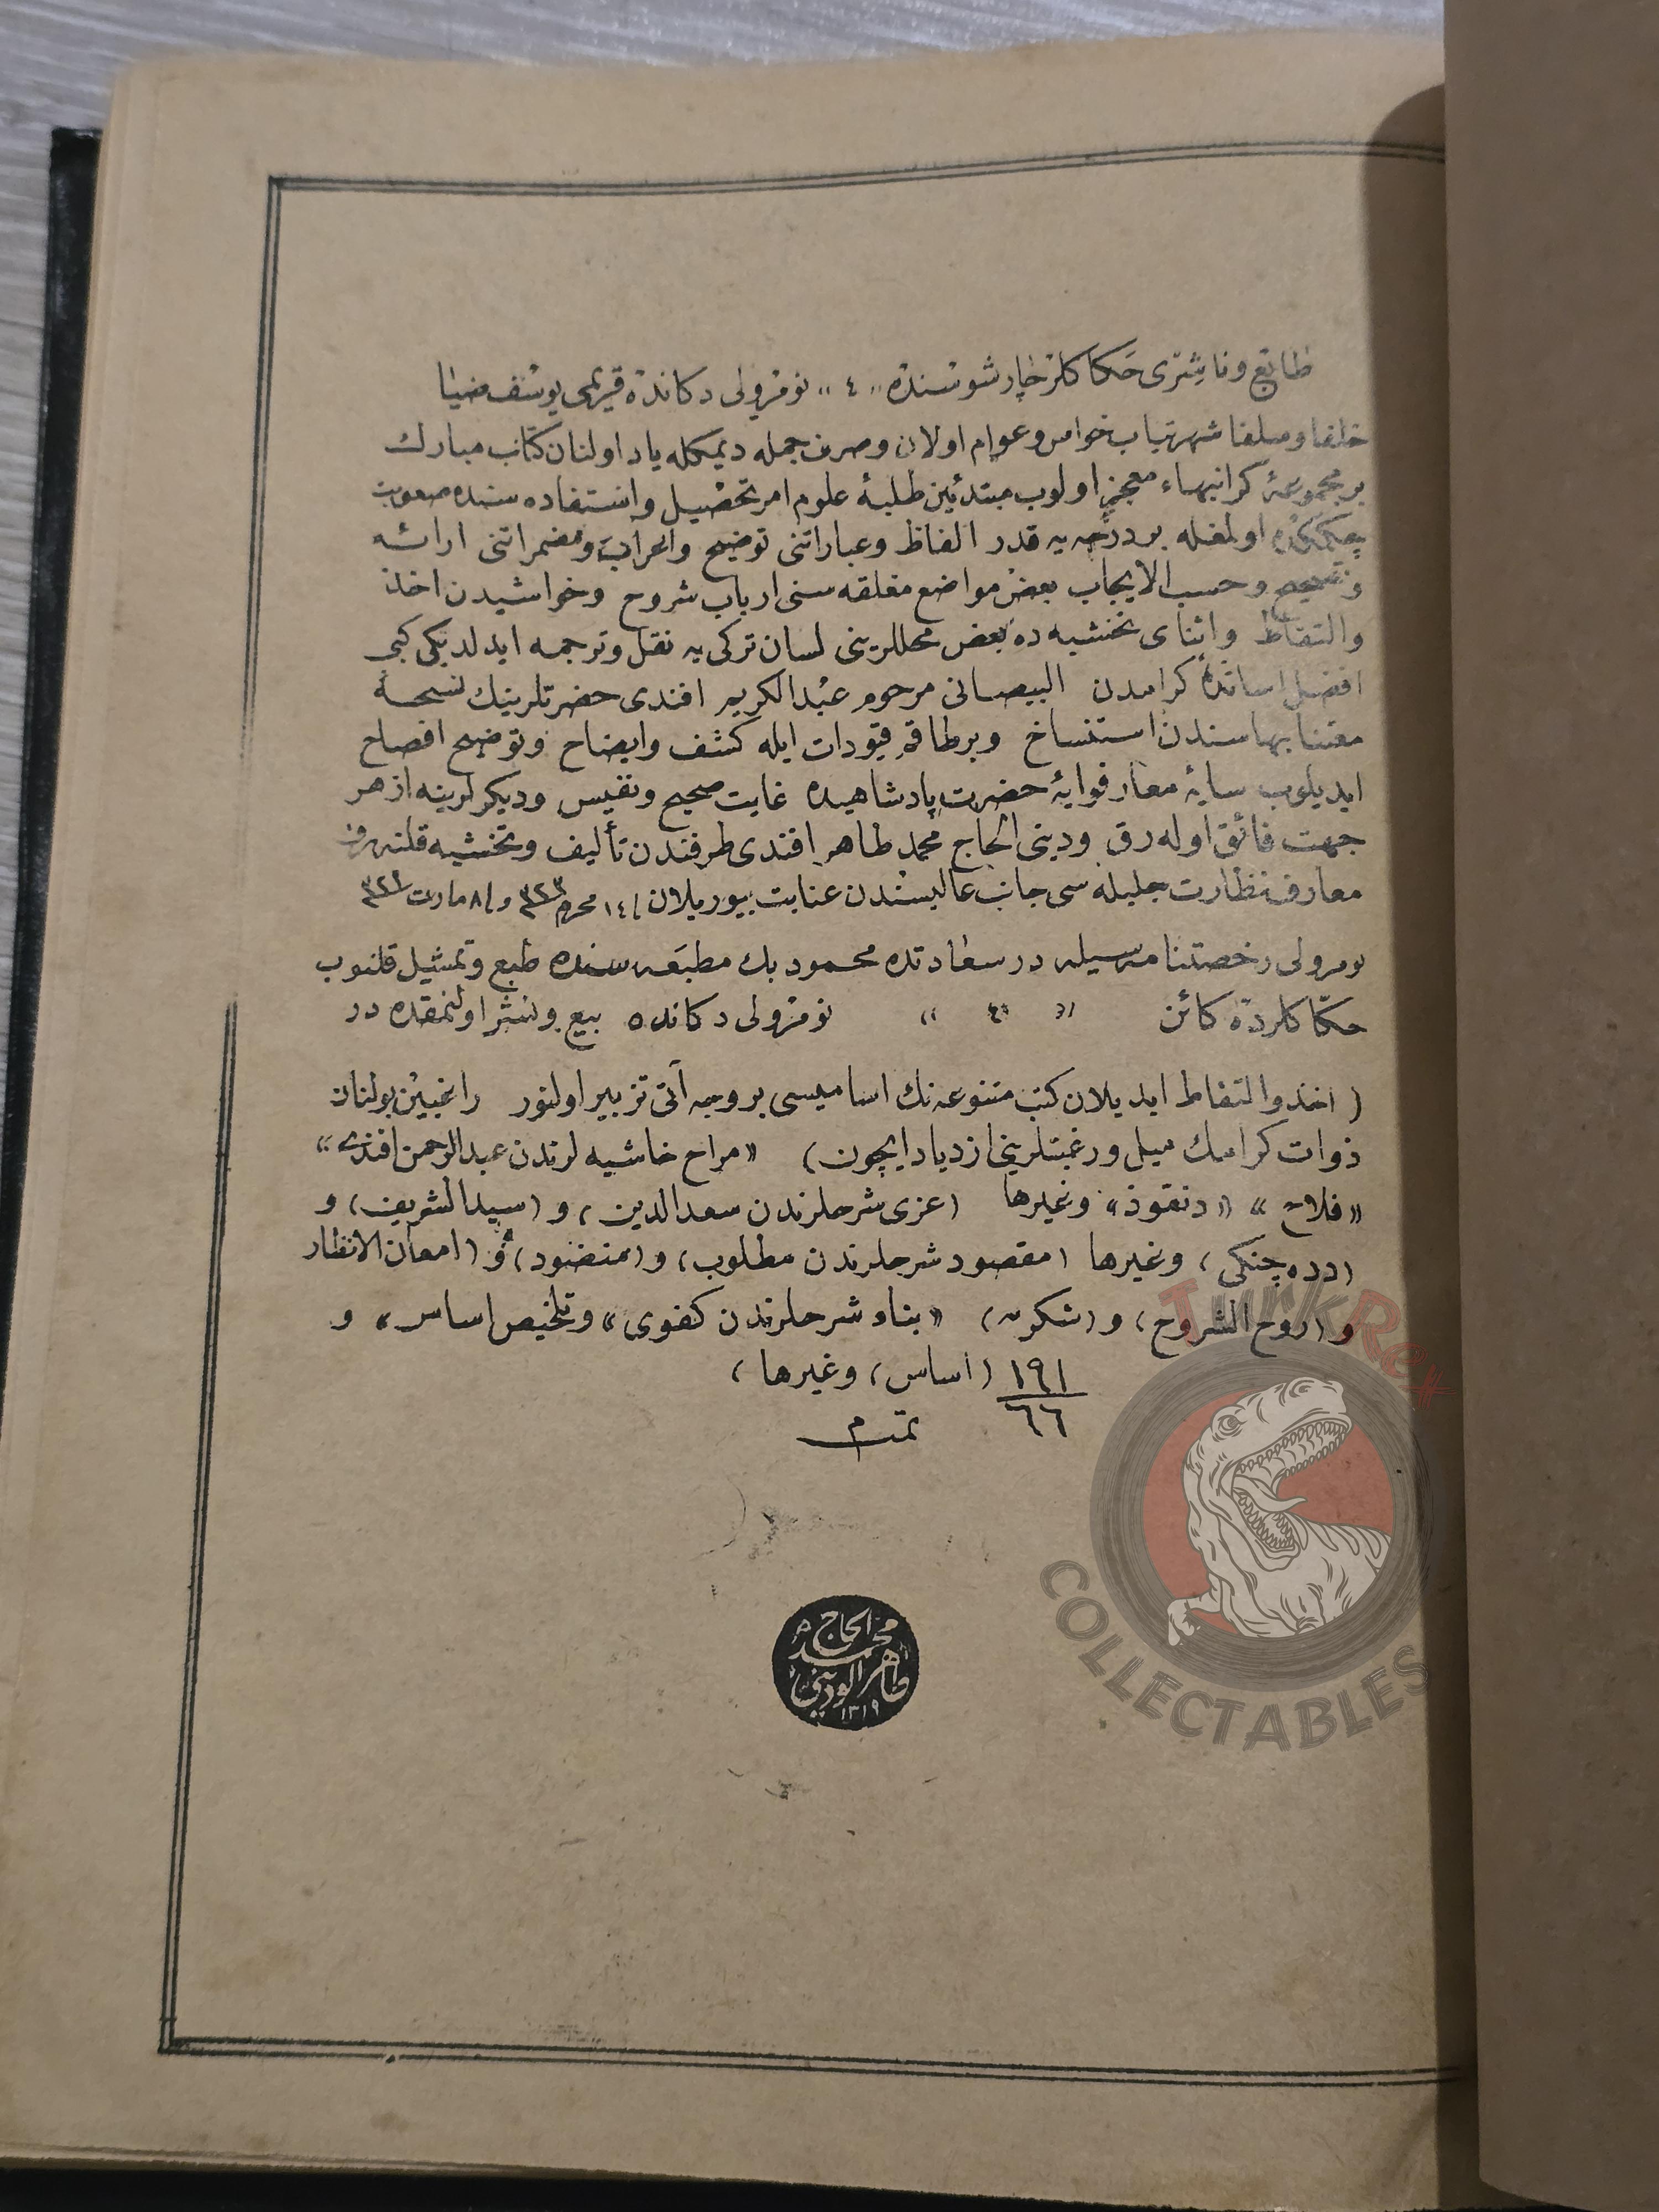 طابع وناشری حكاكلر چارشوسنده „ ٤ „ نومرولی دكانده قریمی یوسف ضیا
خلفا وسلفا شهرتیاب خواص وعوام اولان وصرف جمله دیمكله یاد اولنان كتاب مبارك
بر مجموعهٔ كرانبهاء معجز اولوب مبتدئین طلبهٔ علوم امر تحصیل واستفاده سنده صعوبت
چكمكده اولمغله بو درجه یه قدر الفاظ وعباراتنی توضیح واعراب ومضمراتنی ارائه
وتصحیح وحسب الایجاب بعض مواضع مغلقه سنی ارباب شروح وخواشیدن اخذ
والتقاط واثنای تخشیه ده بعض محللرینی لسان تركی یه نقل وترجمه ایدلدیكی كبی
افضل اساتذهٔ كرامدن البیصانی مرحوم عبدالكریم افندی حضرتلرینك نسخهٔ
مقتنا بهاسندن استنساخ وبرطاقم قیودات ایله كشف وایضاح وتوضیح افصاح
ایدیلوب سایهٔ معارفوایهٔ حضرت پادشاهیده غایت صحیح ونفیس ودیكرلرینه از هر
جهت فائق اوله رق ودینی الحاج محمد طاهر افندی طرفندن تألیف وتخشیه قلنه رق
معارف نظارت جلیله سی جانب عالیسندن عنایت بیوریلان ١٤ محرم ٣٢٣ و ٨ مارت ٣٢١
نومرولی رخصتنامه سیله در سعادتده محمود بك مطبعه سنده طبع وتمثیل قلنوب
حكّاكلرده كائن „ ٤ „ نومرولی دكانده بیع ونشر اولنمقده در
( اخذ والتقاط ایدیلان كتب متنوعه نك اسامیسی بر وجه آتی تزبیر اولنور راغبین بولنان
ذوات كرامك میل ورغبتلرینی ازدیاد ایچون ) « مراح خاشیه لرندن عبدالرحمن افندی »
« فلاح » « دنقوذ » وغیرها ( عزی شرحلرندن سعدالدین ) و ( سیدالشریف ) و
( دده چنكی ) وغیرها ( مقصود شرحلرندن مطلوب ) و ( منضود ) و ( امعان الانظار
و ( روح الشروح ) و ( شكریه ) « بناء شرحلرندن كفوی » وتلخیص اساس » و
( اساس ) وغیرها )
١٩١
٦٦
تمم
الحاج
محمد
طاهر الودینی
١٣١٩
TurkRex
COLLECTABLES